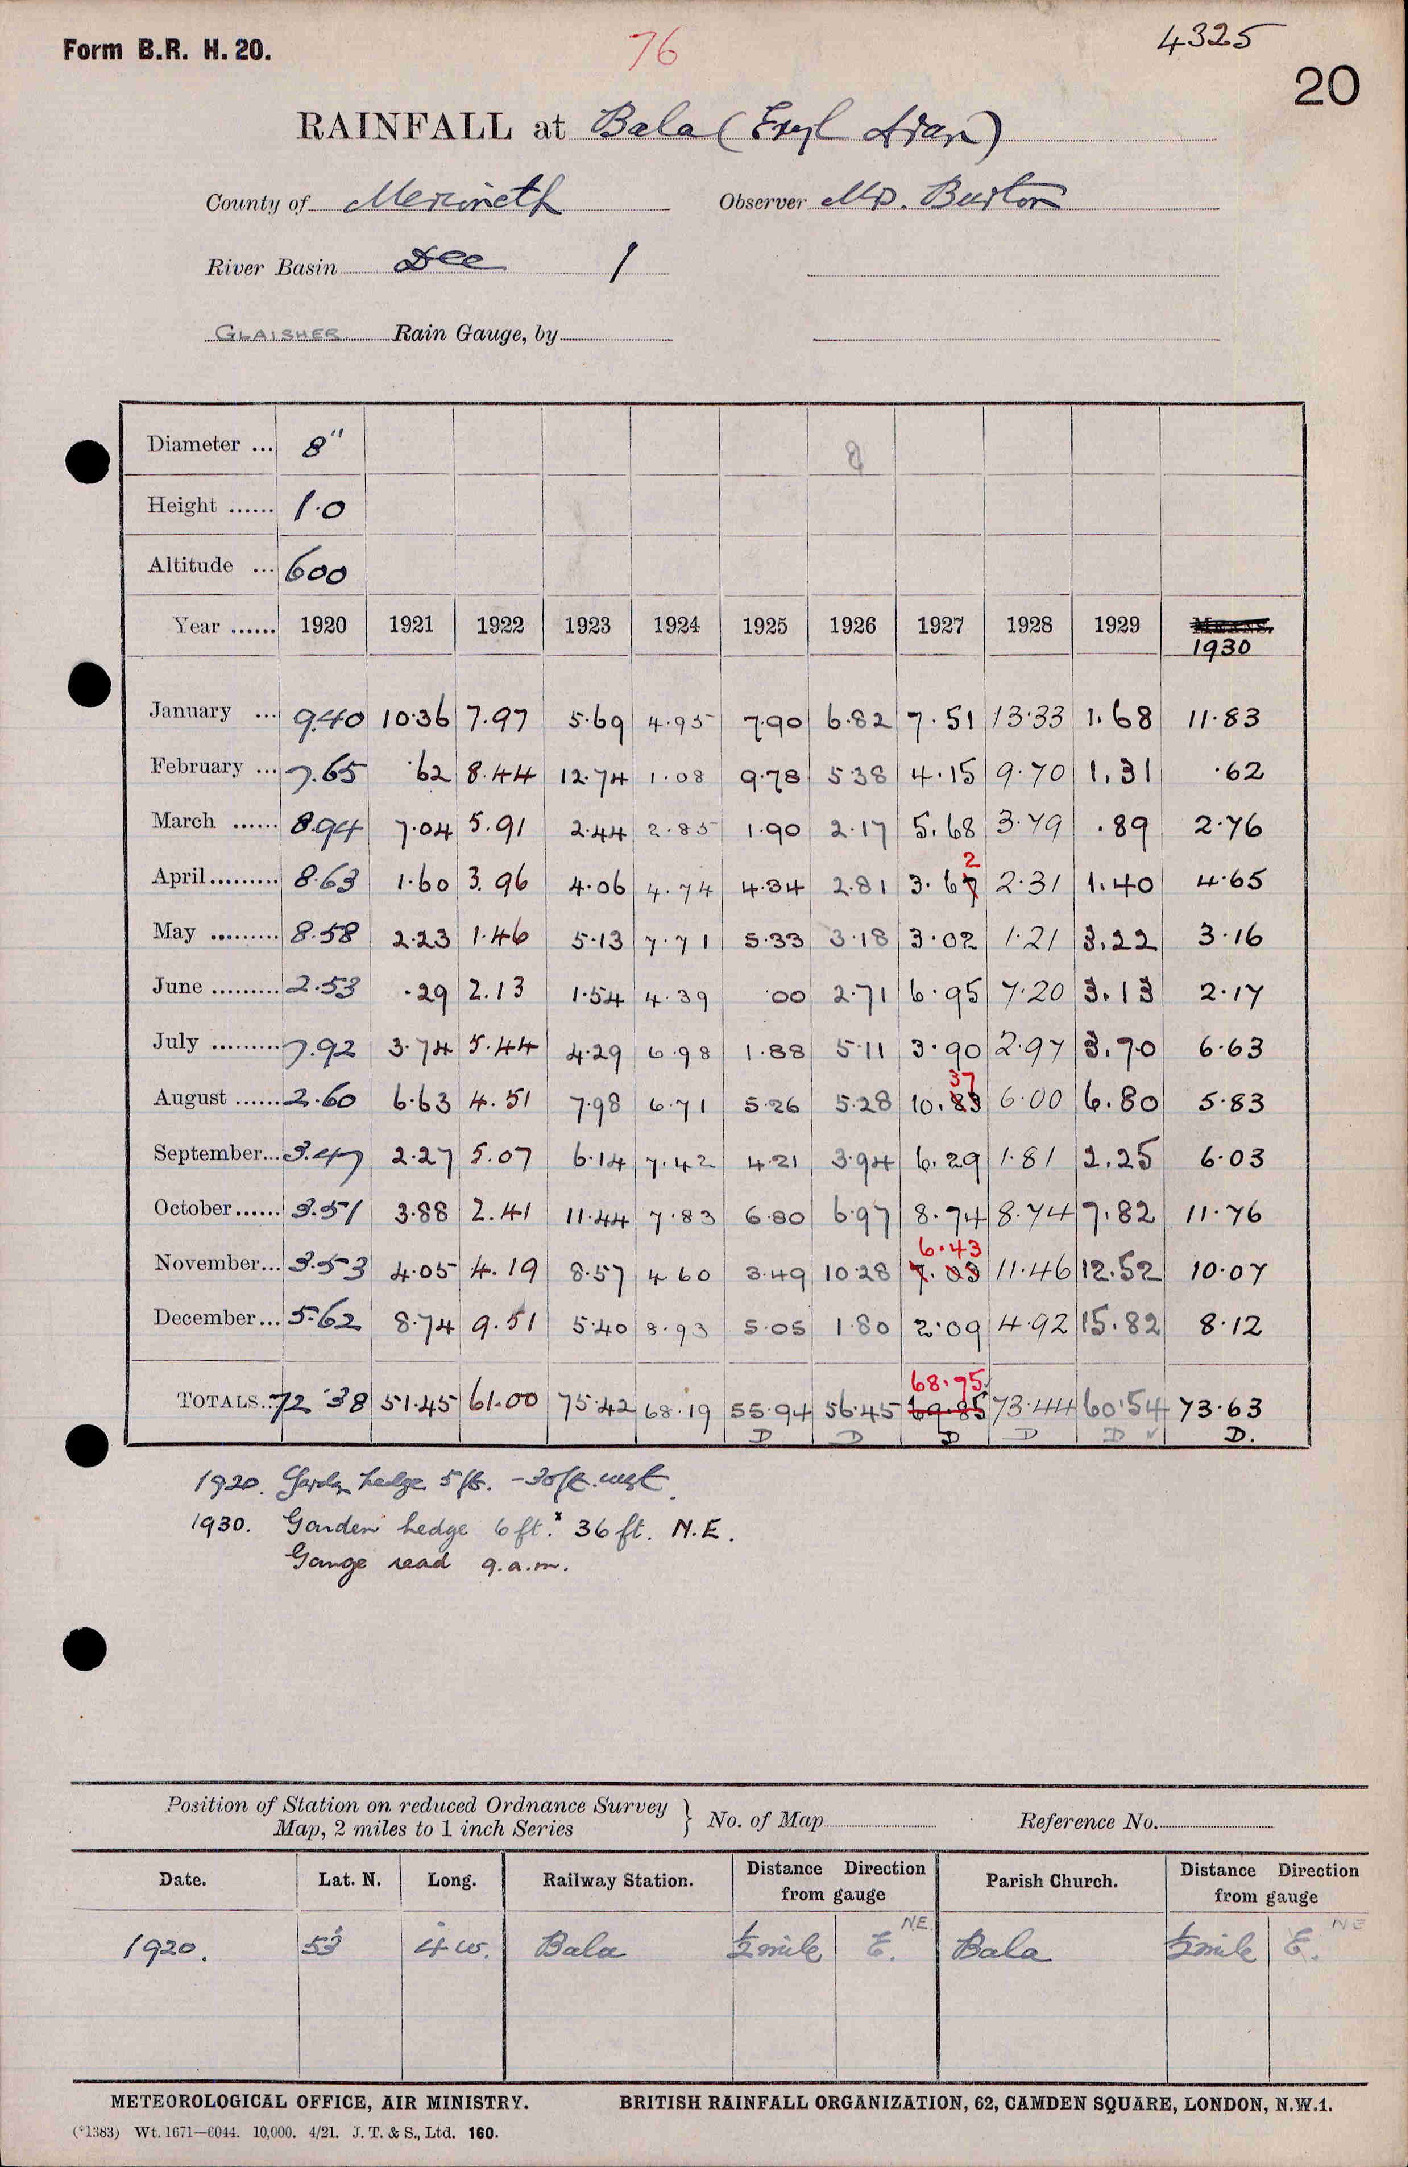 Form B.R. H. 20.
76
4325
20
RAINFALL at Bala (Eryl Aran)
County of Merioneth Observer Mr. Burton
River Basin Dee 1
GLAISHER Rain Gauge, by
Diameter ... 8"
Height ...... 1.0
Altitude ... 600
Year ...... 1920 1921 1922 1923 1924 1925 1926 1927 1928 1929 1930
January ... 9.40 10.36 7.97 5.69 4.95 7.90 6.82 7.51 13.33 1.68 11.83
February ... 7.65 .62 8.44 12.74 1.08 9.78 5.38 4.15 9.70 1.31 .62
March ...... 8.94 7.04 5.91 2.44 2.85 1.90 2.17 5.68 3.79 .89 2.76
2
April......... 8.63 1.60 3.96 4.06 4.74 4.34 2.81 3.67 2.31 1.40 4.65
May ......... 8.58 2.23 1.46 5.13 7.71 5.33 3.18 3.02 1.21 3.22 3.16
June ......... 2.53 .29 2.13 1.54 4.39 .00 2.71 6.95 7.20 3.13 2.17
July ......... 7.92 3.74 5.44 4.29 6.98 1.88 5.11 3.90 2.97 3.70 6.63
37
August ...... 2.60 6.63 4.51 7.98 6.71 5.26 5.28 10.83 6.00 6.80 5.83
September... 3.47 2.27 5.07 6.14 7.42 4.21 3.94 6.29 1.81 2.25 6.03
October...... 3.51 3.88 2.41 11.44 7.83 6.80 6.97 8.74 8.74 7.82 11.76
6.43
November... 3.53 4.05 4.19 8.57 4.60 3.49 10.28 7.03 11.46 12.52 10.07
December... 5.62 8.74 9.51 5.40 8.93 5.05 1.80 2.09 4.92 15.82 8.12
68.75
TOTALS.. 72.38 51.45 61.00 75.42 68.19 55.94 56.45 69.85 73.44 60.54 73.63
D D D D D D.
1920. Garden hedge 5 ft. - 30 ft. west.
1930. Garden hedge 6 ft. 36 ft. N.E.
Gauge read 9.a.m.
Position of Station on reduced Ordnance Survey
Map, 2 miles to 1 inch Series } No. of Map Reference No.
Date. Lat. N. Long. Railway Station. Distance Direction from gauge Parish Church. Distance Direction from gauge
NE. NE
1920. 53 4 w. Bala ½ mile E. Bala ½ mile E.
METEOROLOGICAL OFFICE, AIR MINISTRY. BRITISH RAINFALL ORGANIZATION, 62, CAMDEN SQUARE, LONDON, N.W.1.
(*1383) Wt. 1671—6044. 10,000. 4/21. J. T. & S., Ltd. 160.